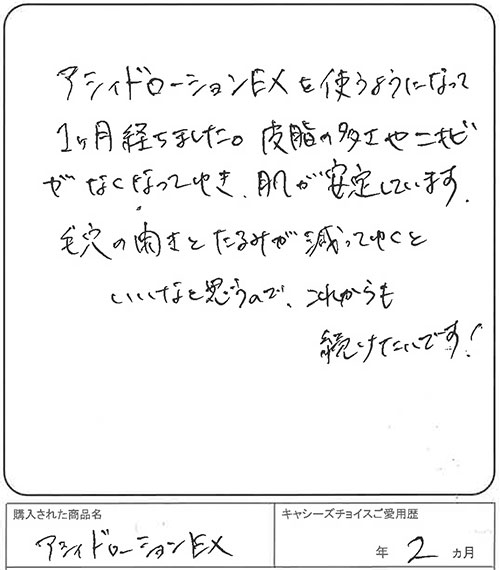 アシィドローションEXを使うようになって
1ヶ月経ちました。皮脂の多さやニキビ
がなくなってゆき、肌が安定しています。
毛穴の開きとたるみが減ってゆくと
いいなと思うので、これからも
続けたいです!
購入された商品名
キャシーズチョイスご愛用歴
アシィドローションEX
年 2 カ月